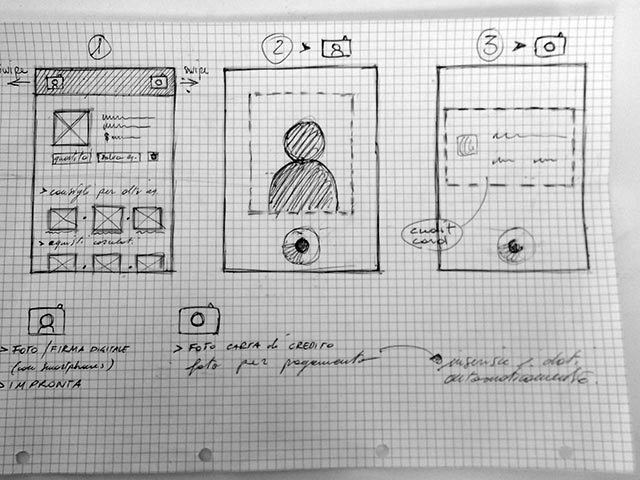 1
2 >
3 >
swipe
swipe
$
> consigli per
> acquisti
credit
card
> FOTO / FIRMA DIGITALE
(con smartphones)
> IMPRONTA
> FOTO CARTA di CREDITO
foto per pagamento
inserisce i dati
automaticamente.